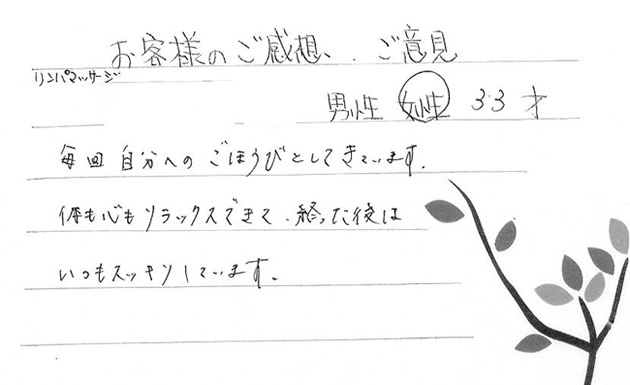 お客様のご感想、ご意見
リンパマッサージ
男性 女性 33才
毎回自分へのごほうびとしてきています。
体も心もリラックスできて、終った後は
いつもスッキリしています。